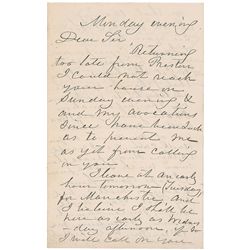 Monday evening
Dear Sir
Returning
too late from Preston
I could not reach
your house on
Sunday evening &
and my avocations
since have been such
as to prevent me
as yet from calling
on you.
I leave at an early
hour tomorrow (Tuesday)
for Manchester and
I believe I shall be
here as early as Wednes
-day afternoon. If so
I will call on you